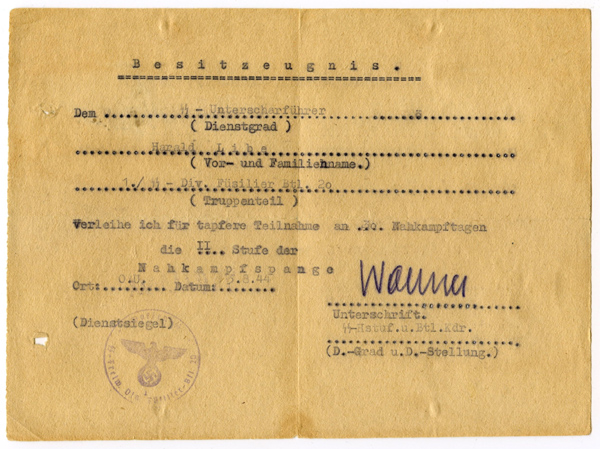 B e s i t z e u g n i s .
Dem ᛋᛋ - Unterscharführer
( Dienstgrad )
Harald L i b a
( Vor- und Familienname.)
1./ ᛋᛋ - Div. Füsilier Btl. 20
( Truppenteil )
Verleihe ich für tapfere Teilnahme an 30. Nahkampftagen
die II. Stufe der
N a h k a m p f s p a n g e
Ort: O.U. Datum: 5.8.44
Unterschrift.
ᛋᛋ-Hstuf.u.Btl.Kdr.
(Dienstsiegel)
(D.-Grad u.D.-Stellung.)